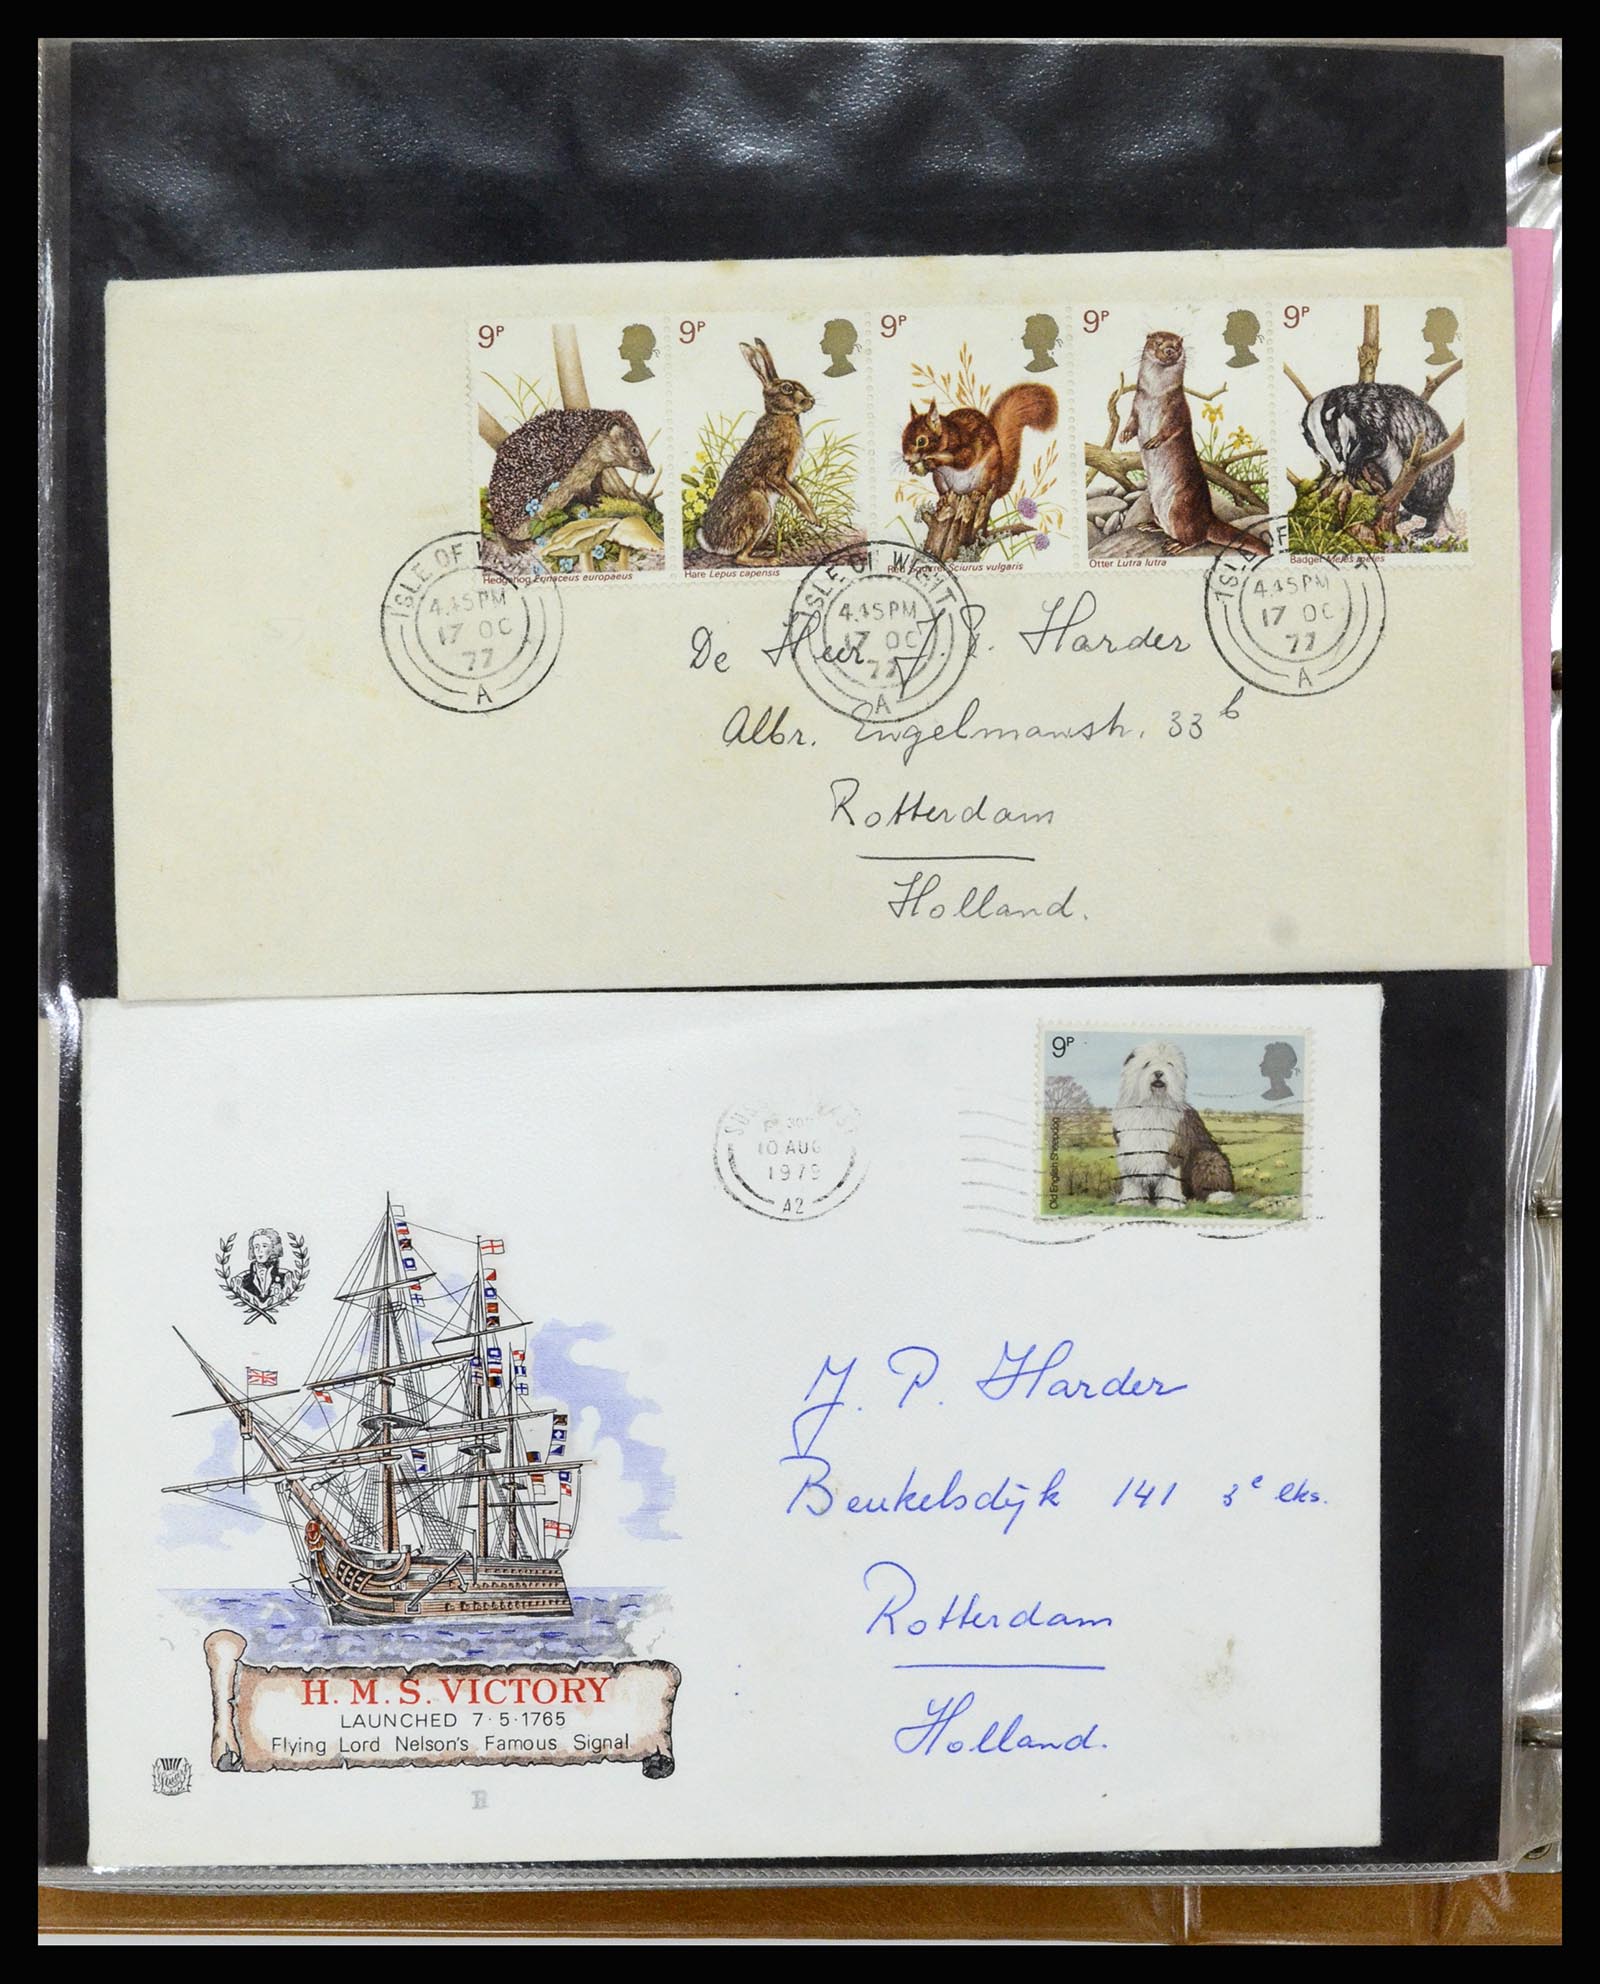 9P
9P
9P
9P
9P
Hedgehog Erinaceus europaeus
Hare Lepus capensis
Red Squirrel Sciurus vulgaris
Otter Lutra lutra
Badger Meles meles
ISLE OF WIGHT
4.45PM
17 OC
77
A
ISLE OF WIGHT
4.45PM
17 OC
77
A
ISLE OF
4.45PM
17 OC
77
A
De Heer J. P. Harder
Albr. Engelmanstr. 33 b
Rotterdam
Holland.
9P
Old English Sheepdog
10 AUG
1979
A2
J. P. Harder
Beukelsdijk 141 3e eks.
Rotterdam
Holland.
H. M. S. VICTORY
LAUNCHED 7·5·1765
Flying Lord Nelson's Famous Signal